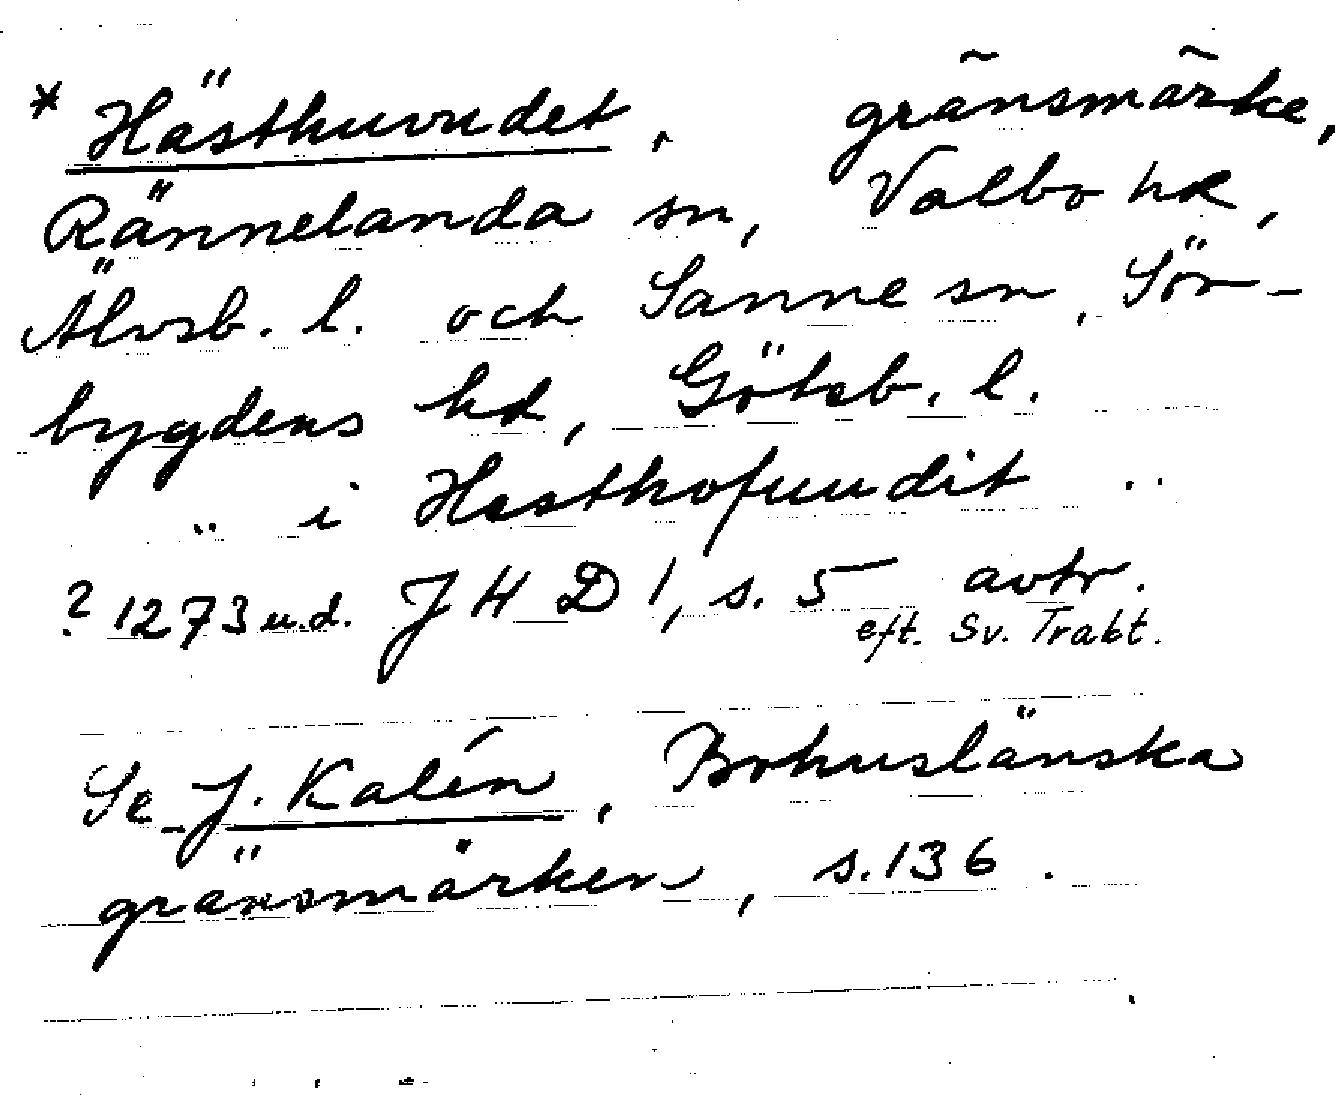 * Hästhuvudet, gränsmärke,
Rännelanda sn, Valbo hd,
Älvsb. l. och Sanne sn, Sör-
bygdens hd, Götab. l.
.. i Hesthofuudit ..
? 1273 u.d. JHD 1, s. 5 avtr.
eft. Sv. Trakt.
Se J. Kalén, Bohuslänska
gränsmärken, s. 136.